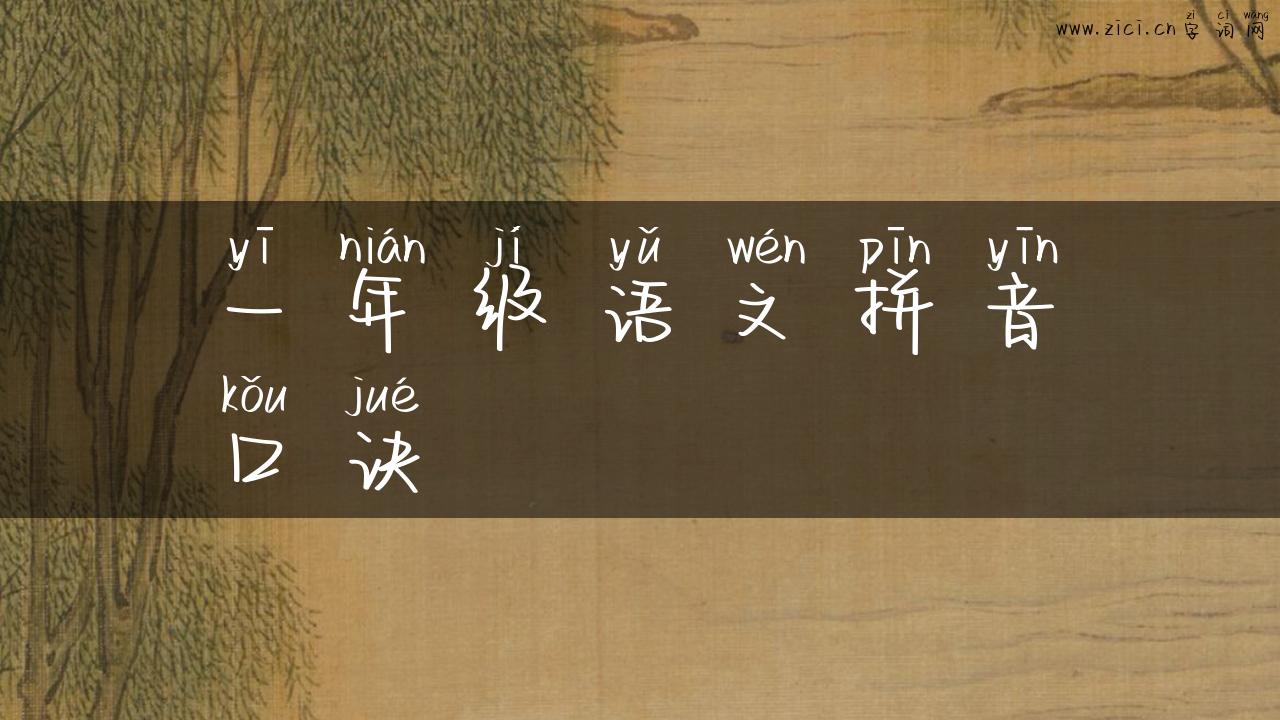 zì cí wǎng
www.zici.cn 字 词 网
yī nián jí yǔ wén pīn yīn
一 年 级 语 文 拼 音
kǒu jué
口 诀